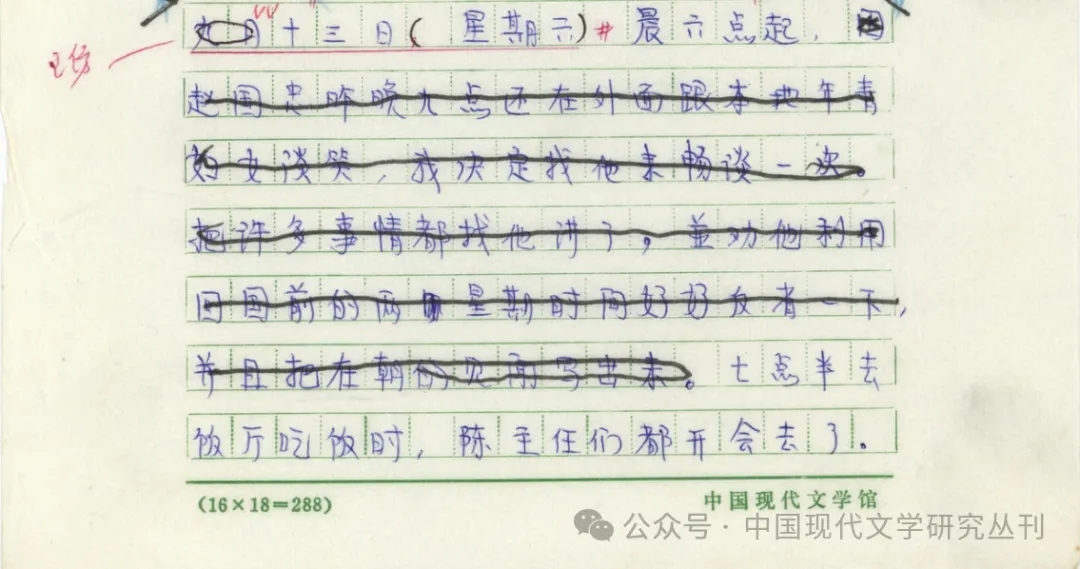 月十三日(星期六)# 晨六点起,因
赵国忠昨晚九点还在外面跟本地年青
妇女谈笑,我决定找他来畅谈一次。
把许多事情都找他讲了,並劝他利用
回国前的两星期时间好好反省一下,
并且把在朝的见闻写出来。七点半去
饭厅吃饭时,陈主任们都开会去了。
(16×18=288) 中国现代文学馆
公众号·中国现代文学研究丛刊